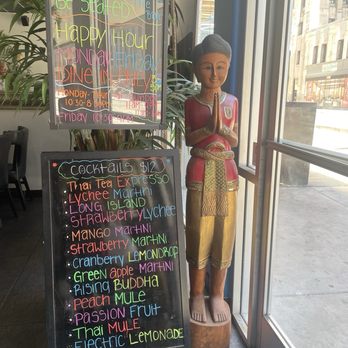 Be Seated
Happy Hour
Monday-Friday
Dine in only
Monday-
10:30-8
Friday 10:30
Cocktails $12
Thai Tea Expresso
Lychee Martini
Long Island
Strawberry Lychee
Mango Martni
Strawberry Martni
Cranberry Lemondrop
Green Apple Martni
Rising Buddha
Peach Mule
Passion Fruit
Thai Mule
Electric Lemonade